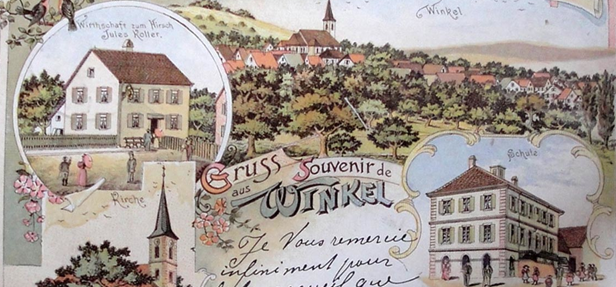 Wirthschaft zum Hirsch
Jules Koller.
Winkel
Kirche
Gruss aus
Souvenir de
WINKEL
Schule
Je Vous remercie
infiniment pour
que